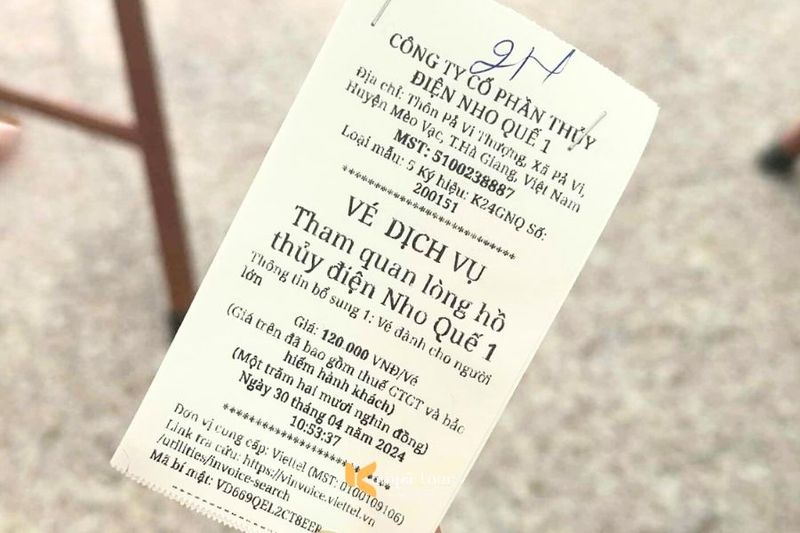 2H
CÔNG TY CỔ PHẦN THỦY
ĐIỆN NHO QUẾ 1
Địa chỉ: Thôn Pả Vi Thượng, Xã Pả Vi,
Huyện Mèo Vạc, T.Hà Giang, Việt Nam
MST: 5100238887
Loại mẫu: 5 Ký hiệu: K24GNQ Số:
200151
************************
VÉ DỊCH VỤ
Tham quan lòng hồ
thủy điện Nho Quế 1
Thông tin bổ sung 1: Vé dành cho người
lớn
Giá: 120.000 VNĐ/Vé
(Giá trên đã bao gồm thuế GTGT và bảo
hiểm hành khách)
(Một trăm hai mươi nghìn đồng)
Ngày 30 tháng 04 năm 2024
10:53:37
************************
Đơn vị cung cấp: Viettel (MST: 0100109106)
Link tra cứu: https://vinvoice.viettel.vn
/utilities/invoice-search
Mã bí mật: VD669QEL2CT8EER